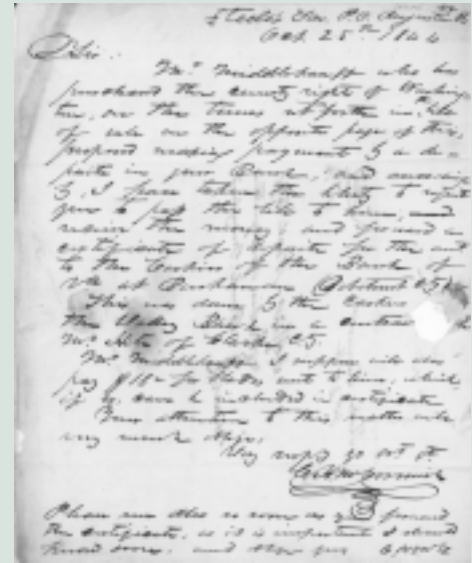 Steeles Tav. P.O. Augusta
Oct. 25th 1844
Dsir.
Mr. Middlekauff who has
purchased the county right of Washing
ton, on the terms set forth in the
of sale on the opposite page of this,
proposed making payment by a de-
posite in your Bank, and
I have taken the liberty to
you to pass the bill to him, and
receive the money and forward a
certificate of deposite for the
to the Cashier of the Bank of
Va at Buchanan (Botetourt Cy)
This was done by the Cashier
the Valley Bank in a contract
Mr. of Clarke Cy.
Mr. Middlekauff I suppose will also
pay $ for sent to him, which
if so, can be included in certificate
Your attention to this matter will
very much
Very resply yr obt st.
C H McCormick
Please me also as soon as you forward
the certificate, as it is important I should
know soon, and